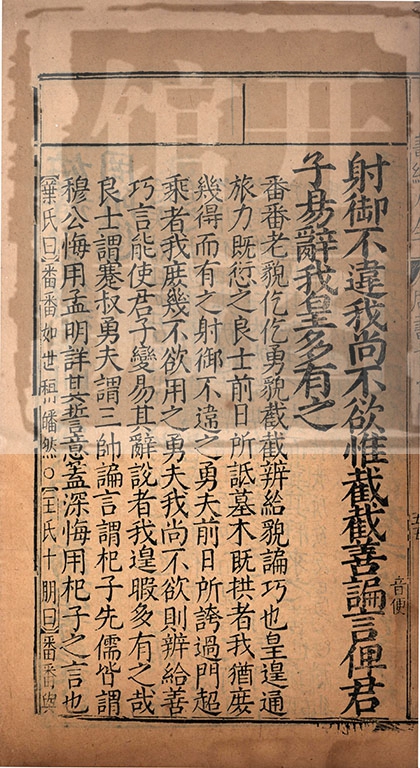 射御不違我尚不欲惟截截善諞言俾君
音便
子易辭我皇多有之
番番老貌仡仡勇貌截截辨給貌諞巧也皇遑通
旅力既愆之良士前日所詆墓木既拱者我猶庶
幾得而有之射御不違之勇夫前日所誇過門超
乘者我庶幾不欲用之勇夫我尚不欲則辨給善
巧言能使君子變易其辭說者我遑暇多有之哉
良士謂蹇叔勇夫謂三帥諞言謂杞子先儒皆謂
穆公悔用孟明詳其誓意蓋深悔用杞子之言也
葉氏曰番番如世稱皤然○王氏十朋曰番番與